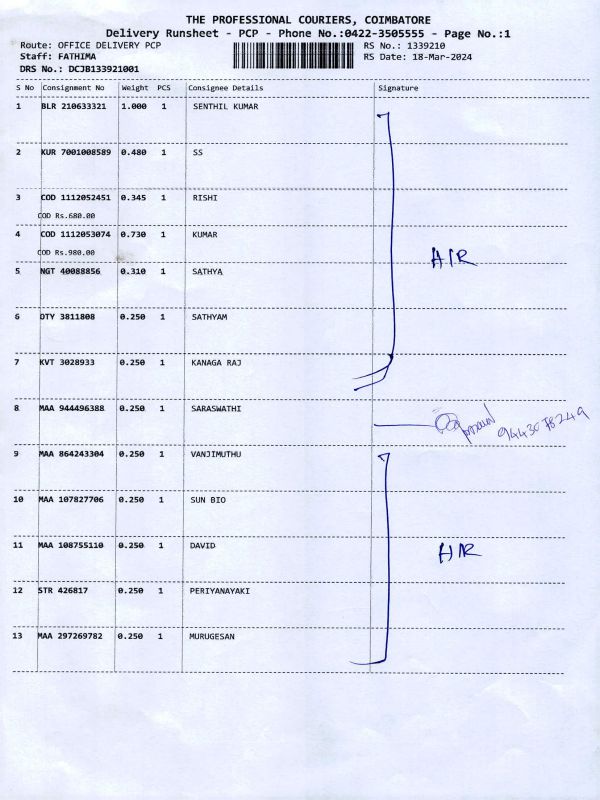 THE PROFESSIONAL COURIERS, COIMBATORE
Delivery Runsheet - PCP - Phone No.:0422-3505555 - Page No.:1
Route: OFFICE DELIVERY PCP
Staff: FATHIMA
DRS No.: DCJB133921001
RS No.: 1339210
RS Date: 18-Mar-2024
S No Consignment No Weight PCS Consignee Details Signature
1 BLR 210633321 1.000 1 SENTHIL KUMAR
2 KUR 7001008589 0.480 1 SS
3 COD 1112052451 0.345 1 RISHI
COD Rs.680.00
4 COD 1112053074 0.730 1 KUMAR
COD Rs.980.00
H/R
5 NGT 40088856 0.310 1 SATHYA
6 DTY 3811808 0.250 1 SATHYAM
7 KVT 3028933 0.250 1 KANAGA RAJ
8 MAA 944496388 0.250 1 SARASWATHI
9443078249
9 MAA 864243304 0.250 1 VANJIMUTHU
10 MAA 107827706 0.250 1 SUN BIO
11 MAA 108755110 0.250 1 DAVID
H/R
12 STR 426817 0.250 1 PERIYANAYAKI
13 MAA 297269782 0.250 1 MURUGESAN